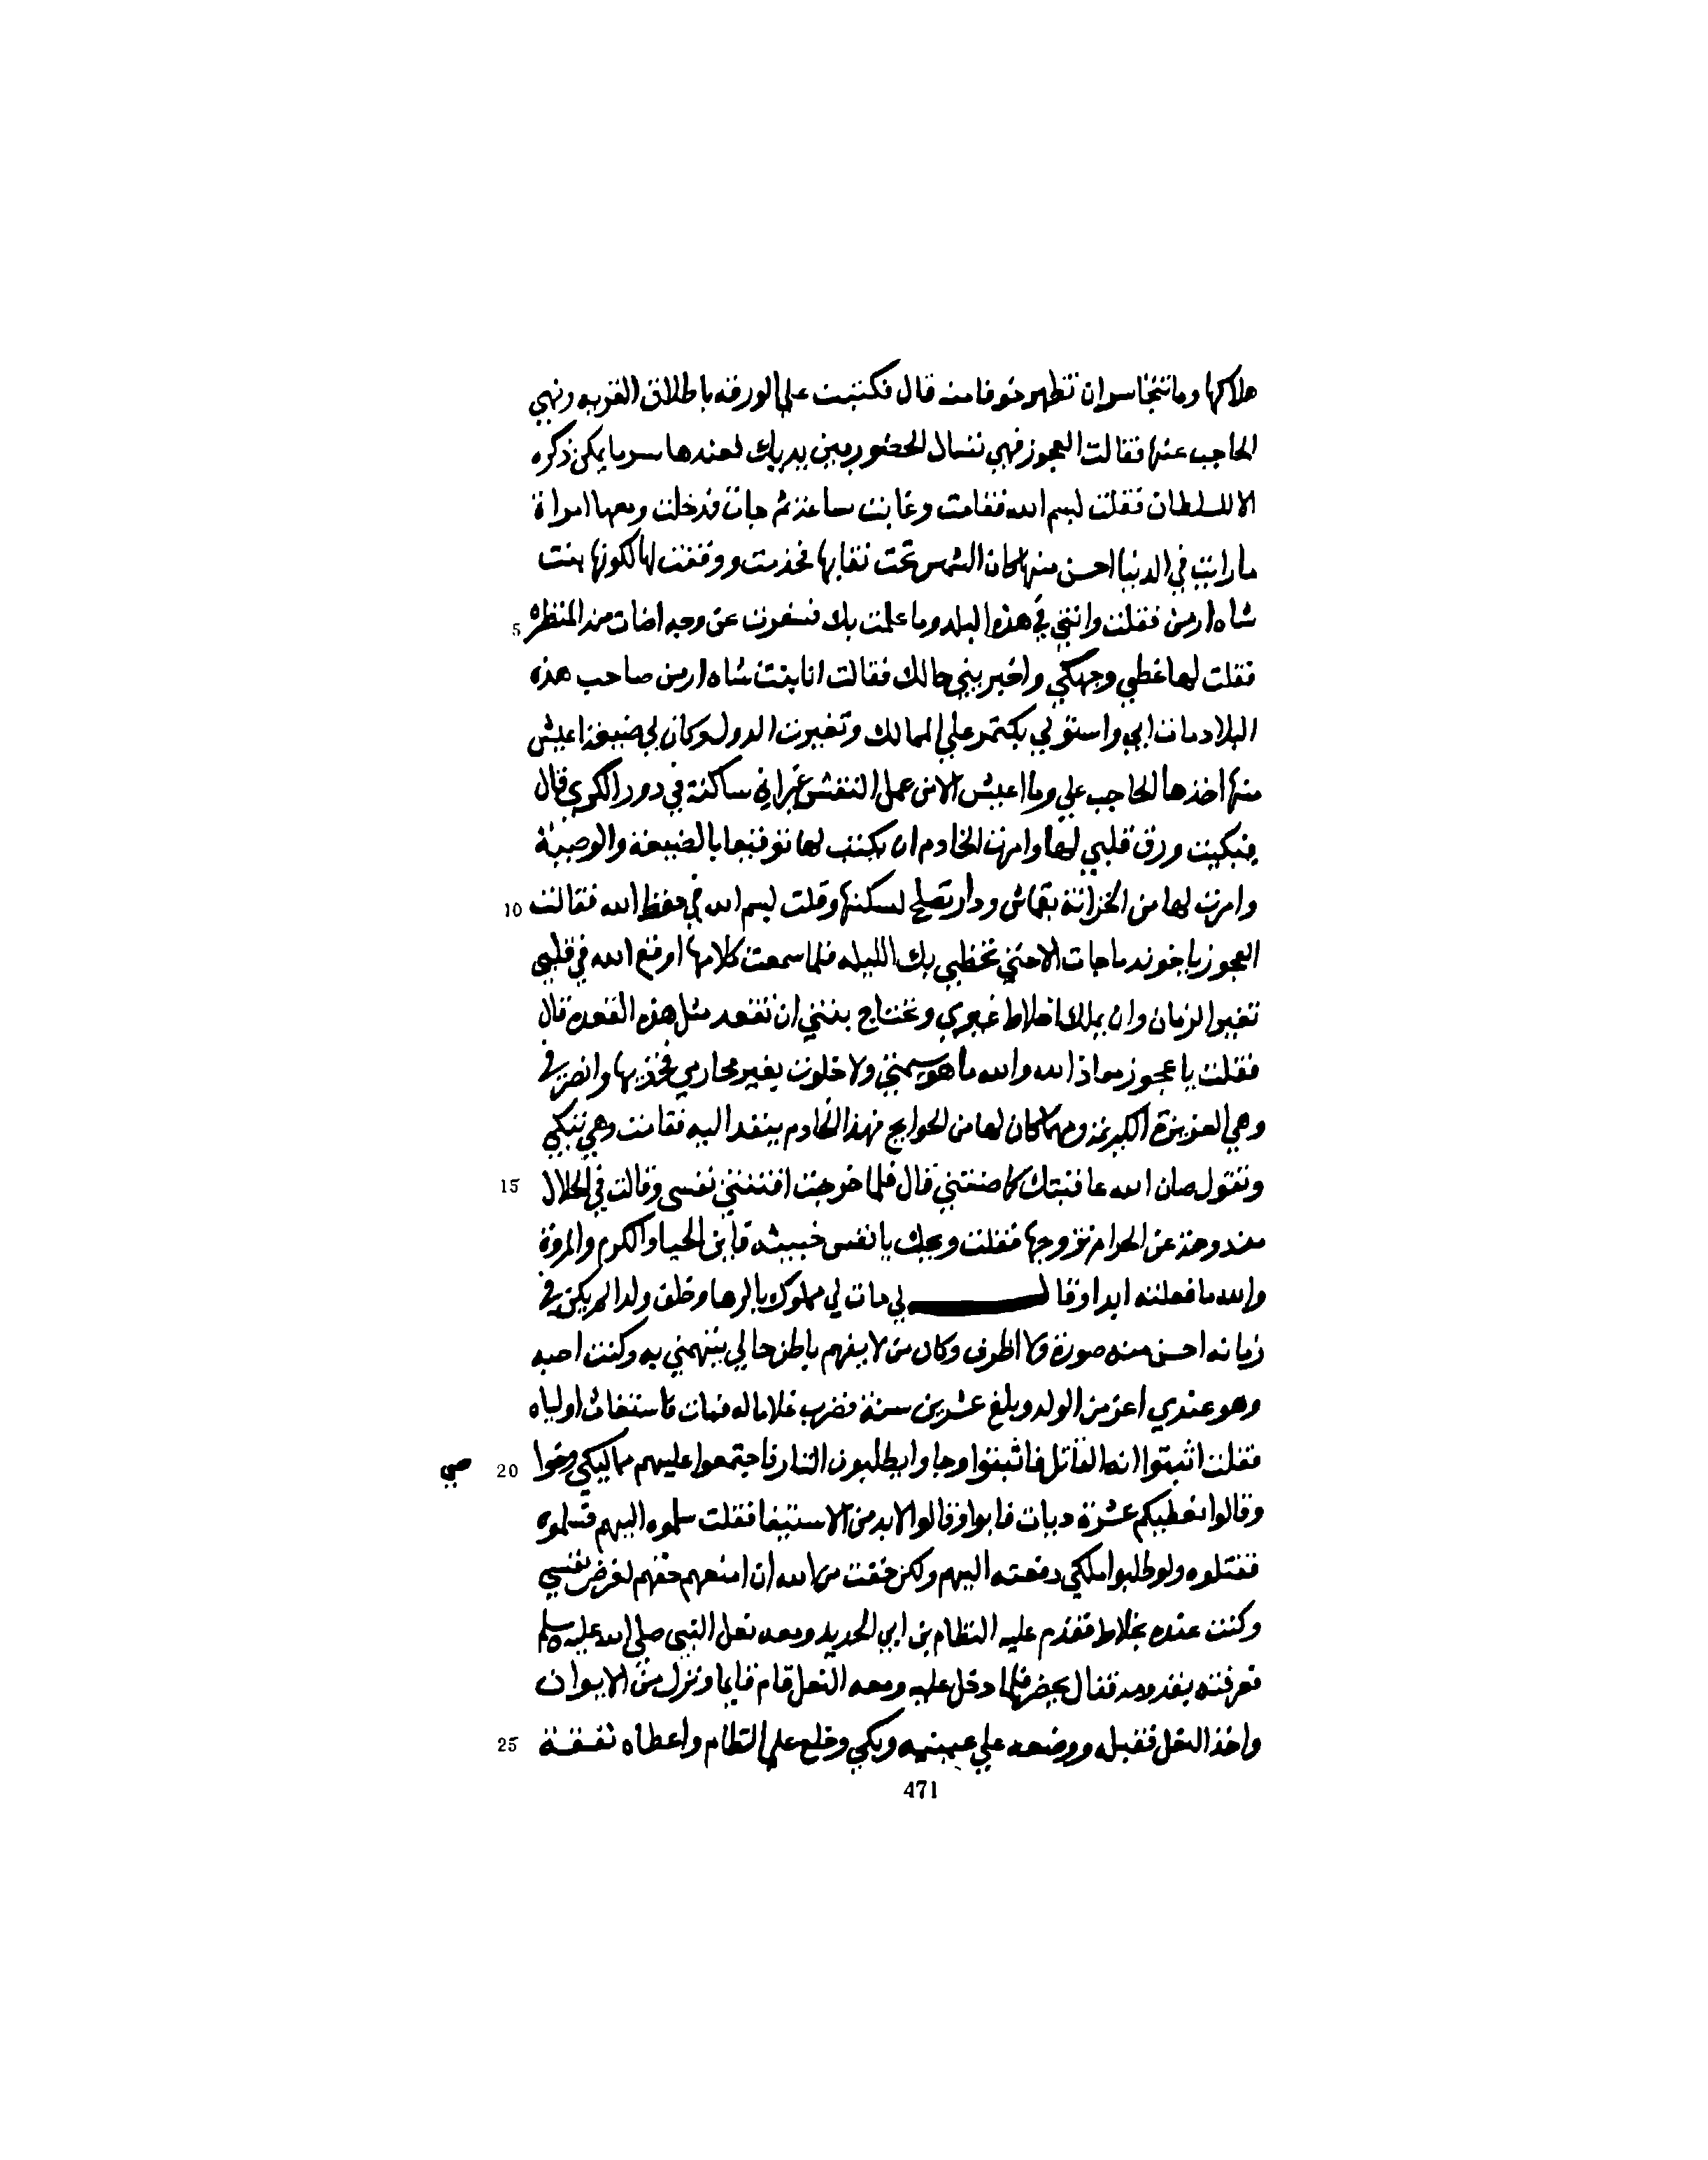 هلاكها وما تتجاسر ان تظهر خوفا منه قال فكتبت علي الورقه باطلاق القريه ونهي
الحاجب عنها فقالت العجوز فهي تسال الحضور بين يديك فعندها سر ما يمكن ذكره
الا للسلطان فقلت بسم الله فقامت وغابت ساعة ثم جات فدخلت ومعها امراة
ما رايت في الدنيا احسن منها كان الشمس تحت نقابها فخدمت ووقفت لها لكونها بنت
شاه ارمن فقلت وانتي في هذه البلد وما علمت بك فسفرت عن وجه اضات منه المنظره 5
فقلت لها غطي وجهكي واخبريني حالك فقالت انا بنت شاه ارمن صاحب هذه
البلاد مات ابي واستولي بكتمر علي الممالك وتغيرت الدول وكان لي ضيعة اعيش
منها اخذها الحاجب علي وما اعيش الا من عمل النقش غير اني ساكنة في دور الكري قال
فبكيت ورق قلبي لها وامرت الخادم ان يكتب لها توقيعا بالضيعة والوصية
وامرت لها من الخزانة بقماش ودار تصلح لسكنها وقلت بسم الله في حفظ الله فقالت 10
العجوز يا خوند ما جات الا حتي تحظي بك الليله فلما سمعت كلامها اوقع الله في قلبي
تغير الزمان وان يملك اخلاط غيري وتحتاج بنتي ان تقعد مثل هذه القعده قال
فقلت يا عجوز معاذ الله والله ما هو شيمتي ولا خلوت بغير محارمي فخذيها وانصرفي
وهي العزيزة الكريمة ومهما كان لها من الحوايج فهذا الخادم ينفد اليه فقامت وهي تبكي
وتقول صان الله عاقبتك كما صنتني قال فلما خرجت افتتنتني نفسي وقالت في الحلال 15
مندوحة عن الحرام تزوجها فقلت ويحك يا نفس خبيثه فاين الحيا والكرم والمروة
والله ما فعلته ابدا وقال لي مات لي مملوك بالرها وخلف ولدا لم يكن في
زمانه احسن منه صورة ولا اظرف وكان من لا يفهم باطن حالي يتهمني به وكنت احبه
وهو عندي اعز من الولد وبلغ عشرين سنة فضرب غلاما له فمات فاستغاث اولياه
فقلت اثبتوا انه القاتل فاثبتوا وجاوا يطلبون الثار فاجتمعوا عليهم مماليكي 20
وقالوا نعطيكم عشرة ديات فابوا وقالوا لا بد من الاستيفا فقلت سلموه اليهم فسلموه
فقتلوه ولو طلبوا ملكي دفعته اليهم ولكن خفت من الله ان امنعهم حقهم لغرض نفسي
وكنت عنده بخلاط فقدم عليه النظام بن ابي الحديد ومعه نعل النبي صلي الله عليه وسلم
فعرفته بقدومه فقال يحضر فلما دخل عليه ومعه النعل قام قايما ونزل من الايوان
واخذ النعل فقبله ووضعه علي عينيه وبكي وخلع علي النظام واعطاه نفقة 25
471